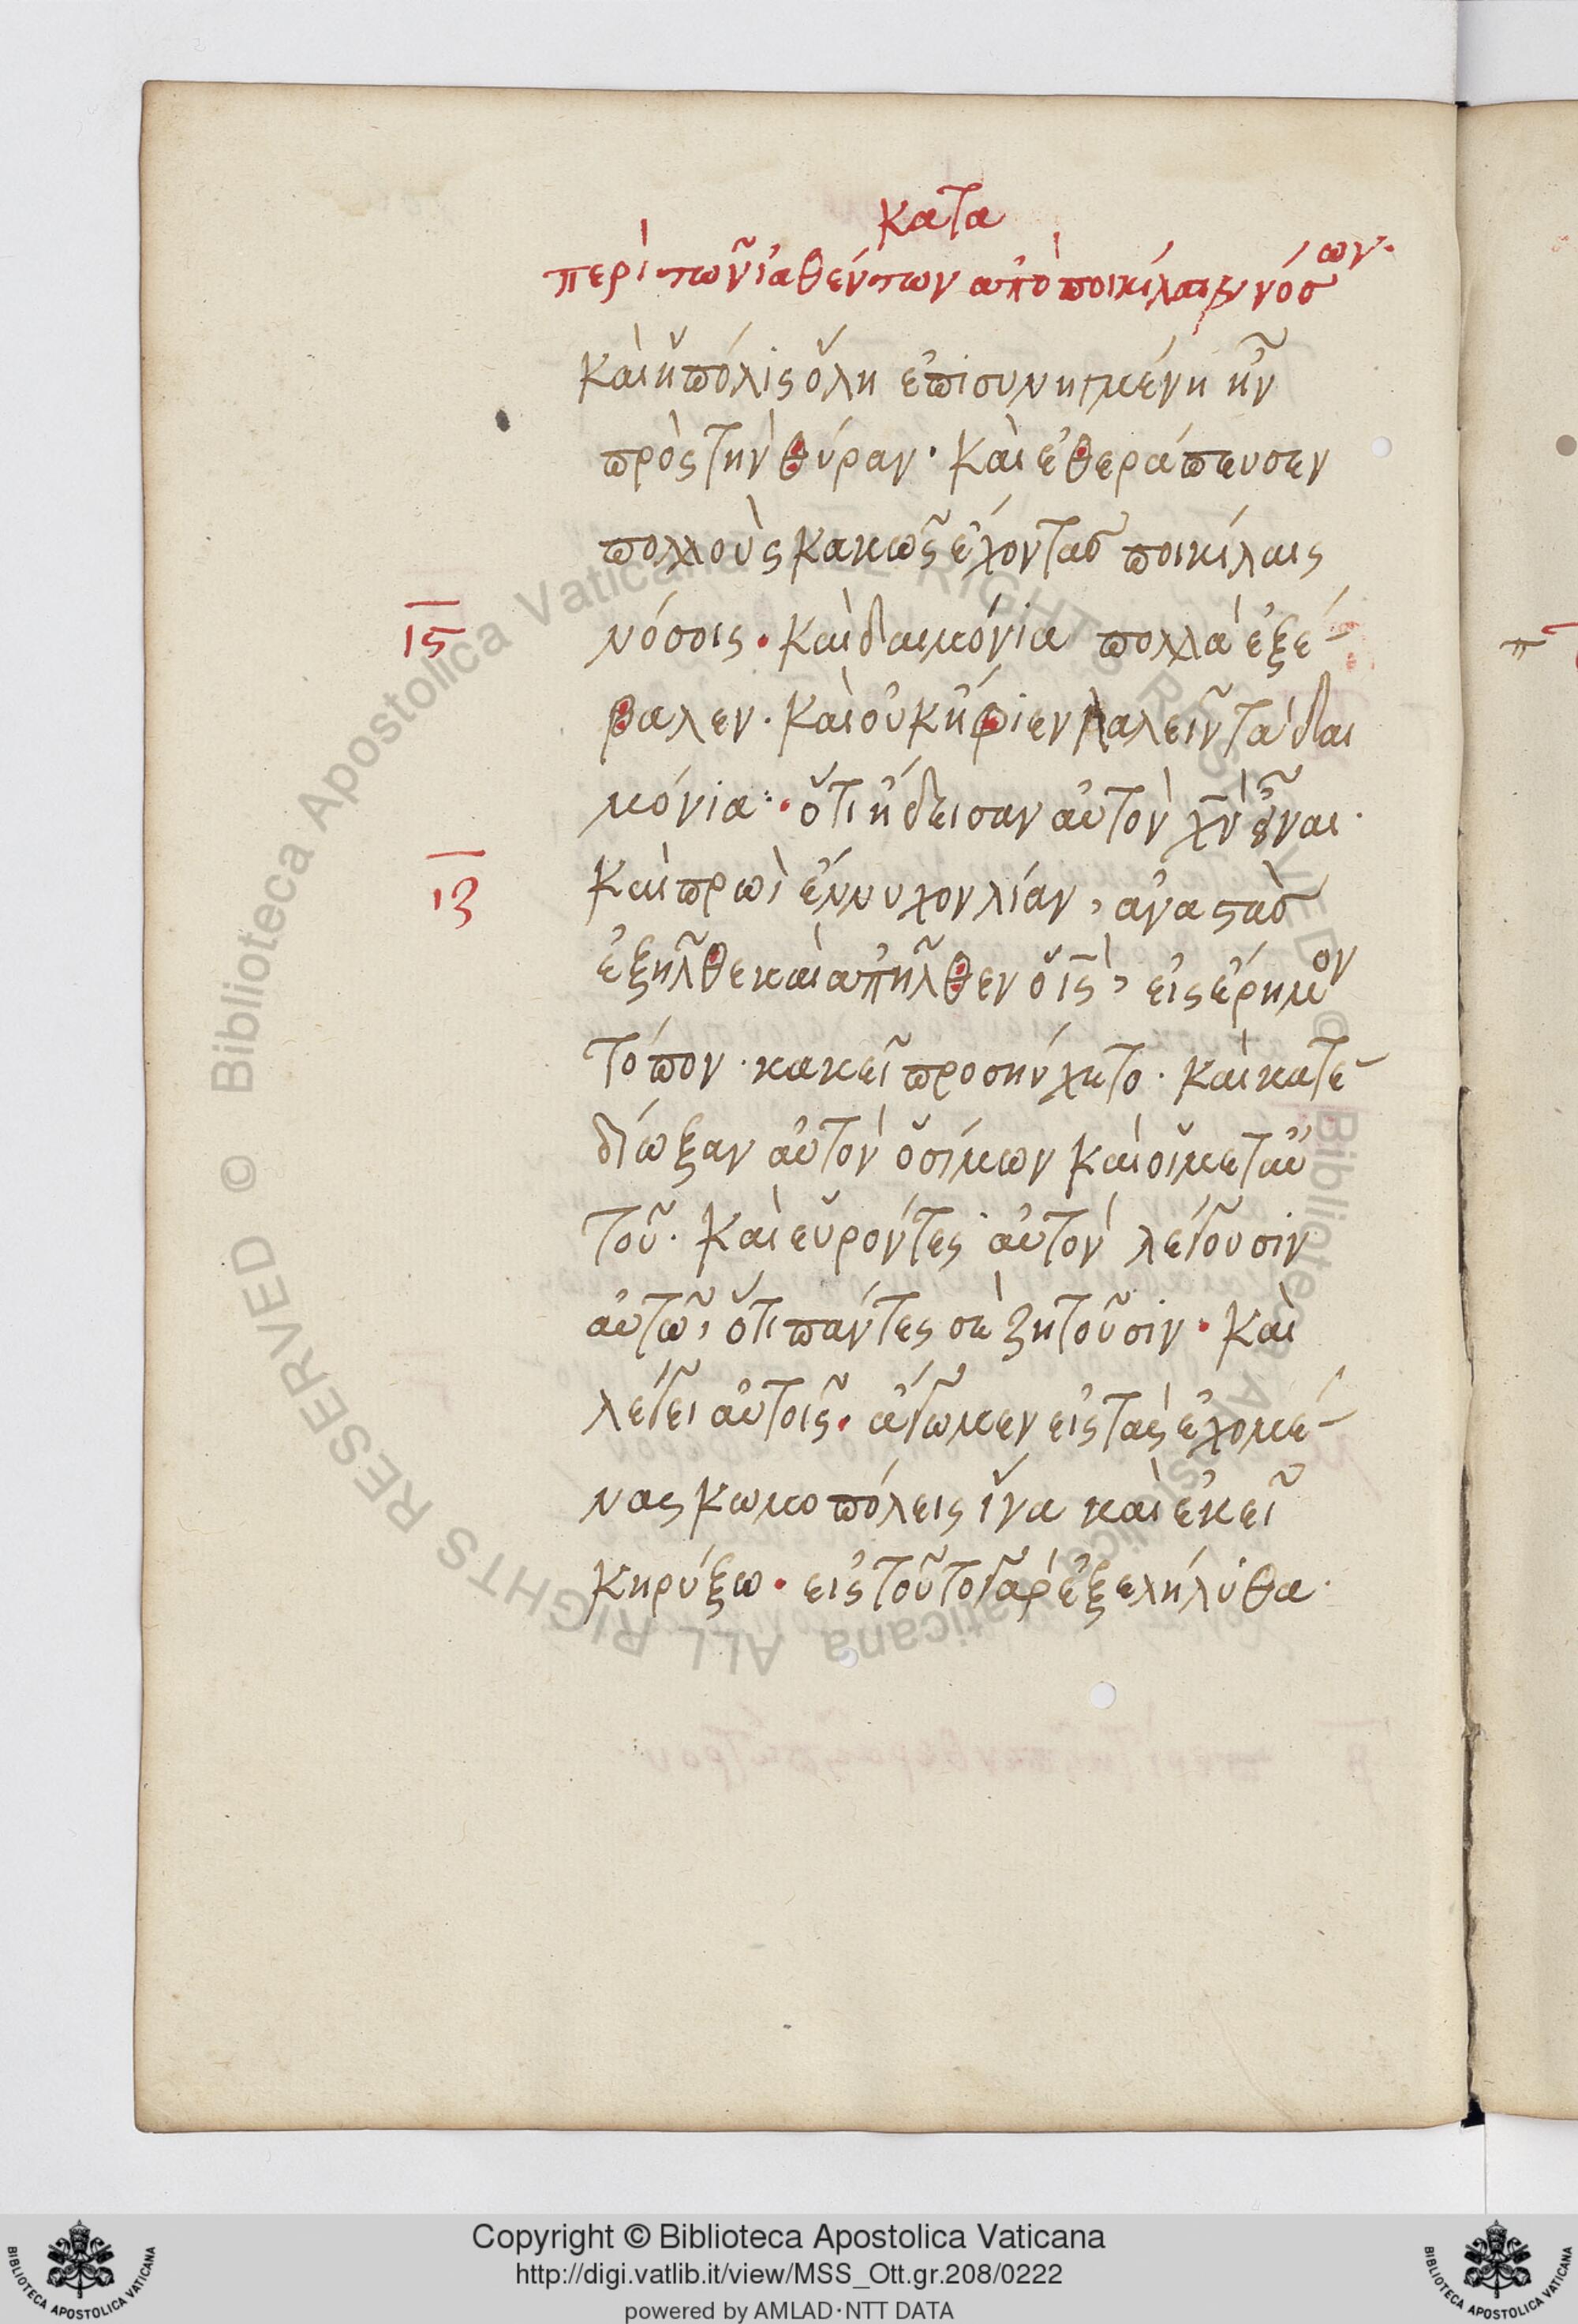 κατα
περὶ τῶν ἰαθέντων ἀπὸ ποικίλων νόσων.
καὶ ἡ πόλις ὅλη ἐπισυνηγμένη ἦν
πρὸς τὴν θύραν· καὶ ἐθεράπευσεν
πολλοὺς κακῶς ἔχοντας ποικίλαις
ις
νόσοις· καὶ δαιμόνια πολλὰ ἐξέ-
βαλεν· καὶ οὐκ ἤφιεν λαλεῖν τὰ δαι
μόνια· ὅτι ᾔδεισαν αὐτὸν χν εἶναι·
ιζ
καὶ πρωῒ ἔννυχον λίαν, ἀναστὰς
ἐξῆλθε καὶ ἀπῆλθεν ὁ ις, εἰς ἔρημον
τόπον· κακεῖ προσηύχετο· καὶ κατε-
δίωξαν αὐτὸν ὁ σίμων καὶ οἱ μετ αὐ
τοῦ· καὶ εὑρόντες αὐτὸν λέγουσιν
αὐτῶ, ὅτι πάντες σὲ ζητοῦσιν· καὶ
λέγει αὐτοῖς· ἄγωμεν εἰς τὰς ἐχομέ-
νας κωμοπόλεις ἵνα καὶ ἐκεῖ
κηρύξω· εἰς τοῦτο γὰρ ἐξελήλυθα·
© Biblioteca Apostolica Vaticana ALL RIGHTS RESERVED © Biblioteca Apostolica Vaticana ALL RIGHTS RESERVED
Copyright © Biblioteca Apostolica Vaticana
http://digi.vatlib.it/view/MSS_Ott.gr.208/0222
powered by AMLAD·NTT DATA
BIBLIOTECA APOSTOLICA VATICANA
BIBLIOTECA APOSTOLICA VATICANA